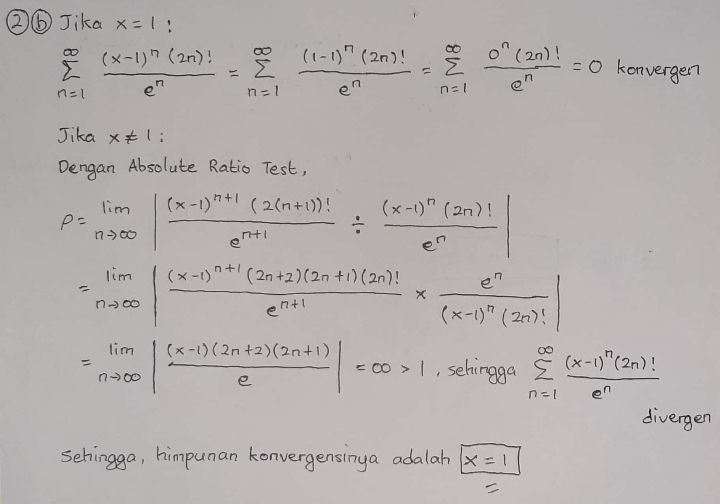 ②ⓑ Jika x = 1 :
∞ ∑ n=1 (x-1)ⁿ (2n)! / eⁿ = ∞ ∑ n=1 (1-1)ⁿ (2n)! / eⁿ = ∞ ∑ n=1 0ⁿ (2n)! / eⁿ = 0 konvergen
Jika x ≠ 1 :
Dengan Absolute Ratio Test,
ρ = lim n→∞ | (x-1)ⁿ⁺¹ (2(n+1))! / eⁿ⁺¹ ÷ (x-1)ⁿ (2n)! / eⁿ |
= lim n→∞ | (x-1)ⁿ⁺¹ (2n+2)(2n+1)(2n)! / eⁿ⁺¹ × eⁿ / (x-1)ⁿ (2n)! |
= lim n→∞ | (x-1)(2n+2)(2n+1) / e | = ∞ > 1, sehingga ∞ ∑ n=1 (x-1)ⁿ (2n)! / eⁿ
divergen
Sehingga, himpunan konvergensinya adalah x = 1